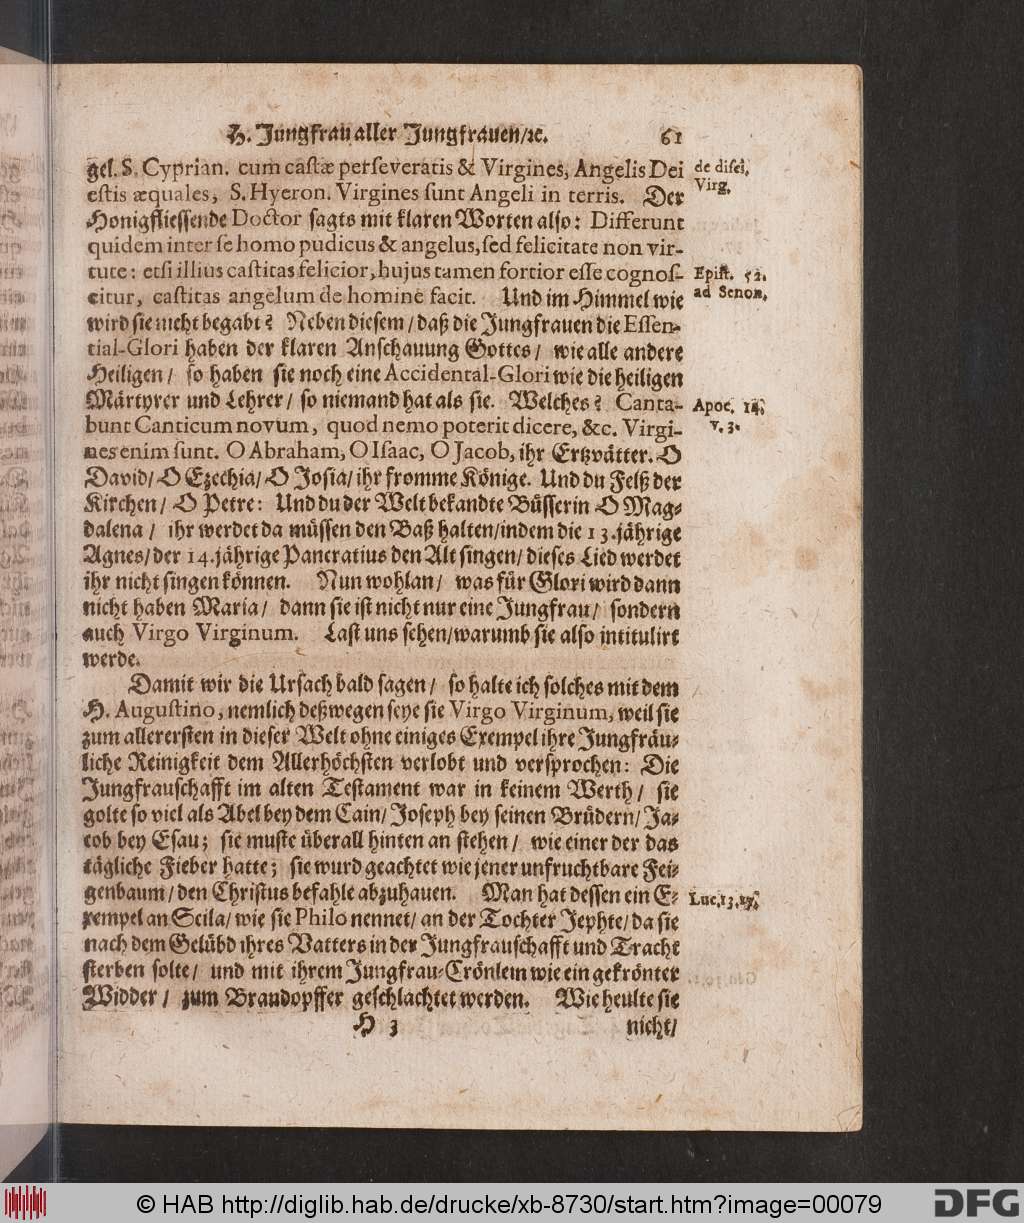 H. Jungfrau aller Jungfrauen/ꝛc. 61
gel. S. Cyprian. cum castæ perseveratis & Virgines, Angelis Dei
estis æquales, S. Hyeron. Virgines sunt Angeli in terris. Der
Honigfliessende Doctor sagts mit klaren Worten also: Differunt
quidem inter se homo pudicus & angelus, sed felicitate non vir-
tute: etsi illius castitas felicior, hujus tamen fortior esse cognos-
citur, castitas angelum de homine facit. Und im Himmel wie
wird sie nicht begabt? Neben diesem/ daß die Jungfrauen die Essen-
tial-Glori haben der klaren Anschauung Gottes/ wie alle andere
Heiligen/ so haben sie noch eine Accidental-Glori wie die heiligen
Märtyrer und Lehrer/ so niemand hat als sie. Welches? Canta-
bunt Canticum novum, quod nemo poterit dicere, &c. Virgi-
nes enim sunt. O Abraham, O Isaac, O Jacob, ihr Ertzvätter. O
David/ O Ezechia/ O Josia/ ihr fromme Könige. Und du Felß der
Kirchen/ O Petre: Und du der Welt bekandte Büsserin O Mag-
dalena/ ihr werdet da müssen den Baß halten/ indem die 13. jährige
Agnes/ der 14. jährige Pancratius den Alt singen/ dieses Lied werdet
ihr nicht singen können. Nun wohlan/ was für Glori wird dann
nicht haben Maria/ dann sie ist nicht nur eine Jungfrau/ sondern
auch Virgo Virginum. Last uns sehen/ warumb sie also intitulirt
werde.
Damit wir die Ursach bald sagen/ so halte ich solches mit dem
H. Augustino, nemlich deßwegen seye sie Virgo Virginum, weil sie
zum allerersten in dieser Welt ohne einiges Exempel ihre Jungfräu-
liche Reinigkeit dem Allerhöchsten verlobt und versprochen: Die
Jungfrauschafft im alten Testament war in keinem Werth/ sie
golte so viel als Abel bey dem Cain/ Joseph bey seinen Brüdern/ Ja-
cob bey Esau; sie muste überall hinten an stehen/ wie einer der das
tägliche Fieber hatte; sie wurd geachtet wie jener unfruchtbare Fei-
genbaum/ den Christus befahle abzuhauen. Man hat dessen ein E-
xempel an Seila/ wie sie Philo nennet/ an der Tochter Jephte/ da sie
nach dem Gelübd ihres Vatters in der Jungfrauschafft und Tracht
sterben solte/ und mit ihrem Jungfrau-Crönlein wie ein gekrönter
Widder/ zum Brandopffer geschlachtet werden. Wie heulte sie
H 3 nicht/
de disci.
Virg.
Epist. 52.
ad Senon.
Apoc. 14.
v. 3.
Luc. 13.
© HAB http://diglib.hab.de/drucke/xb-8730/start.htm?image=00079
DFG